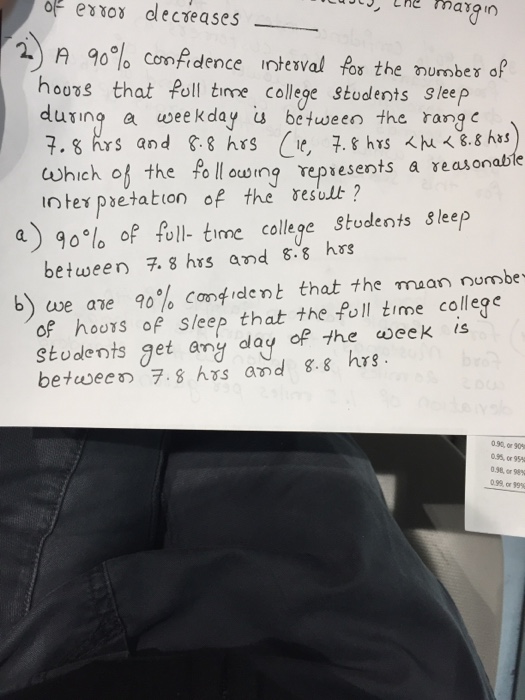 of error decreases
the margin
2) A 90% confidence interval for the number of
hours that full time college students sleep
during a weekday is between the range
7.8 hrs and 8.8 hrs (ie, 7.8 hrs <μ< 8.8 hrs)
which of the following represents a reasonable
interpretation of the result?
a) 90% of full-time college students sleep
between 7.8 hrs and 8.8 hrs
b) we are 90% confident that the mean number
of hours of sleep that the full time college
students get any day of the week is
between 7.8 hrs and 8.8 hrs.
0.90, or 90%
0.95, or 95%
0.98, or 98%
0.99, or 99%